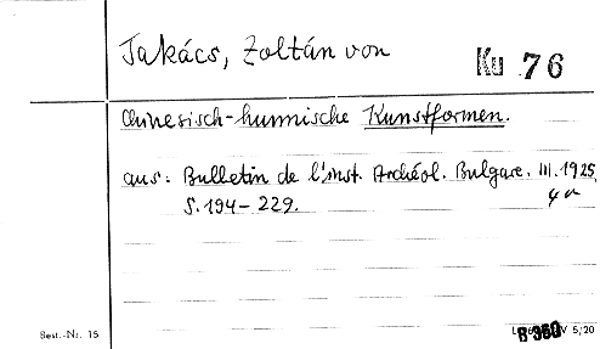 Takács, Zoltán von
Ku 76
Chinesisch-hunnische Kunstformen.
aus: Bulletin de l'inst. Archéol. Bulgare. III. 1925
S. 194-229.
Best.-Nr. 15
B 960
V 5/20